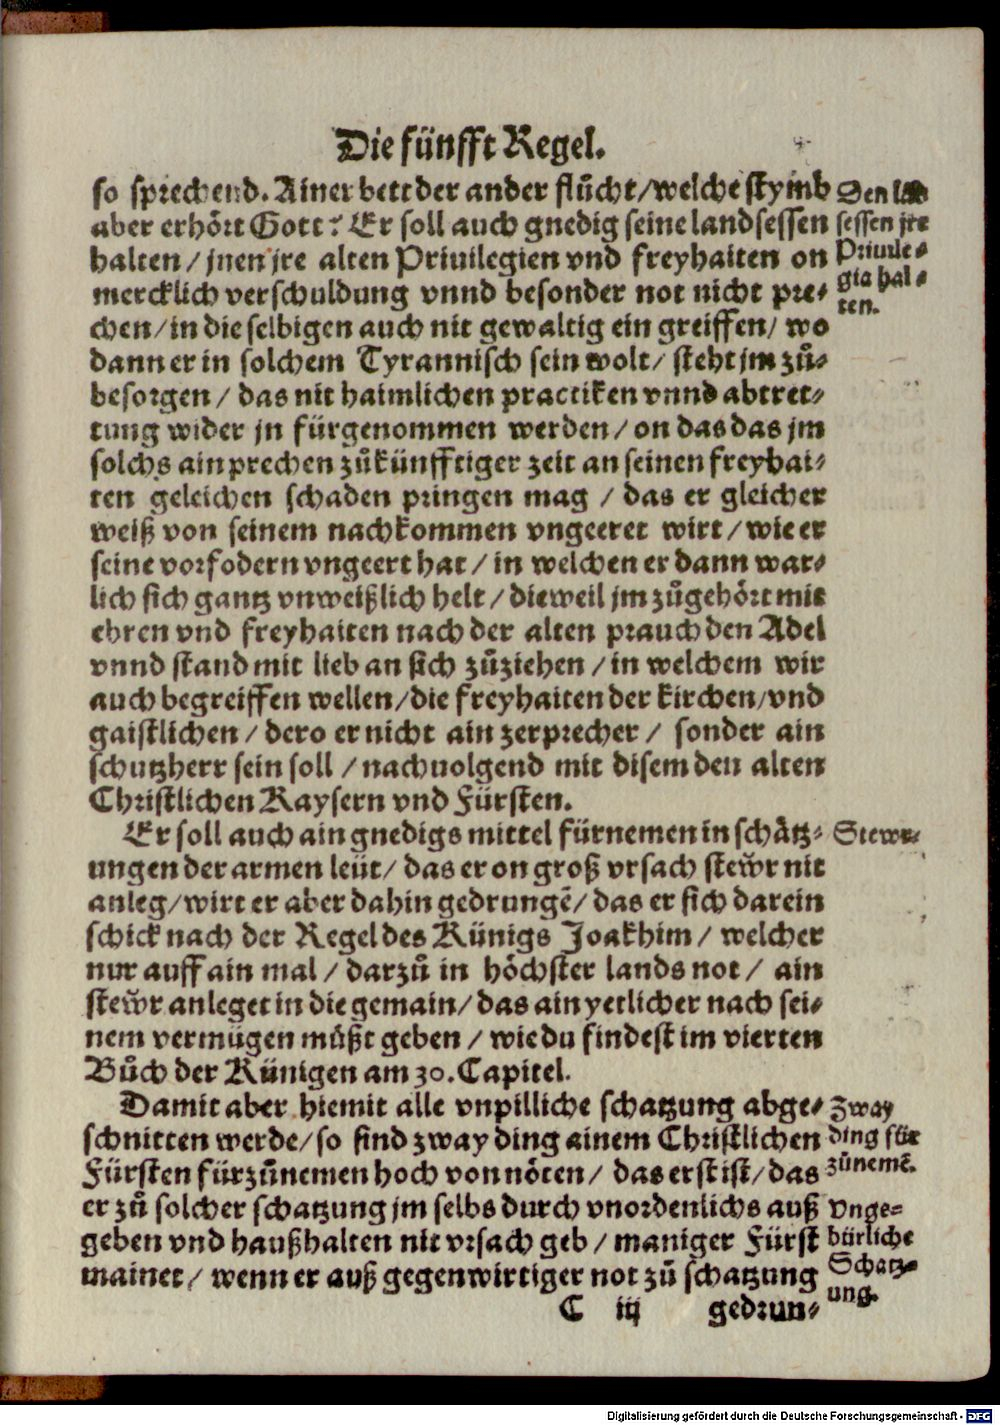 Die fünfft Regel.
so sprechend. Ainer bett der ander flůcht/welche stymb
aber erhört Gott? Er soll auch gnedig seine landsessen
halten/jnen jre alten Priuilegien vnd freyhaiten on
mercklich verschuldung vnnd besonder not nicht pre-
chen/in die selbigen auch nit gewaltig ein greiffen/ wo
dann er in solchem Tyrannisch sein wolt/ steht jm zů-
besorgen/ das nit haimlichen practiken vnnd abtret-
tung wider jn fürgenommen werden/on das das jm
solchs ain prechen zůkünfftiger zeit an seinen freyhai-
ten geleichen schaden pringen mag / das er gleicher
weiß von seinem nachkommen vngeeret wirt/wie er
seine vorfodern vngeert hat/in welchen er dann war-
lich sich gantz vnweißlich helt/dieweil jm zůgehört mit
ehren vnd freyhaiten nach der alten prauch den Adel
vnnd stand mit lieb an sich zůziehen/in welchem wir
auch begreiffen wellen/die freyhaiten der kirchen/vnd
gaistlichen/dero er nicht ain zerprecher/ sonder ain
schutzherr sein soll/nachuolgend mit disem den alten
Christlichen Kaysern vnd Fürsten.
Er soll auch ain gnedigs mittel fürnemen in schätz-
ungen der armen leüt/das er on groß vrsach stewr nit
anleg/wirt er aber dahin gedrungē/das er sich darein
schick nach der Regel des Künigs Joakhim/ welcher
nur auff ain mal/darzů in höchster lands not/ ain
stewr anleget in die gemain/das ain yetlicher nach sei-
nem vermügen müßt geben/wie du findest im vierten
Bůch der Künigen am 30. Capitel.
Damit aber hiemit alle vnpilliche schatzung abge-
schnitten werde/so sind zway ding ainem Christlichen
Fürsten fürzůnemen hoch von nöten/das erst ist/das
er zů solcher schatzung jm selbs durch vnordenlichs auß
geben vnd haußhalten nit vrsach geb/maniger Fürst
mainet/wenn er auß gegenwirtiger not zů schatzung
C iij gedrun-
Den
sessen jre
Priuile-
gia hal-
ten.
Stewr.
Zway
ding für
zůnemē.
Vnge-
bürliche
Schatz-
ung.
Digitalisierung gefördert durch die Deutsche Forschungsgemeinschaft - DFG